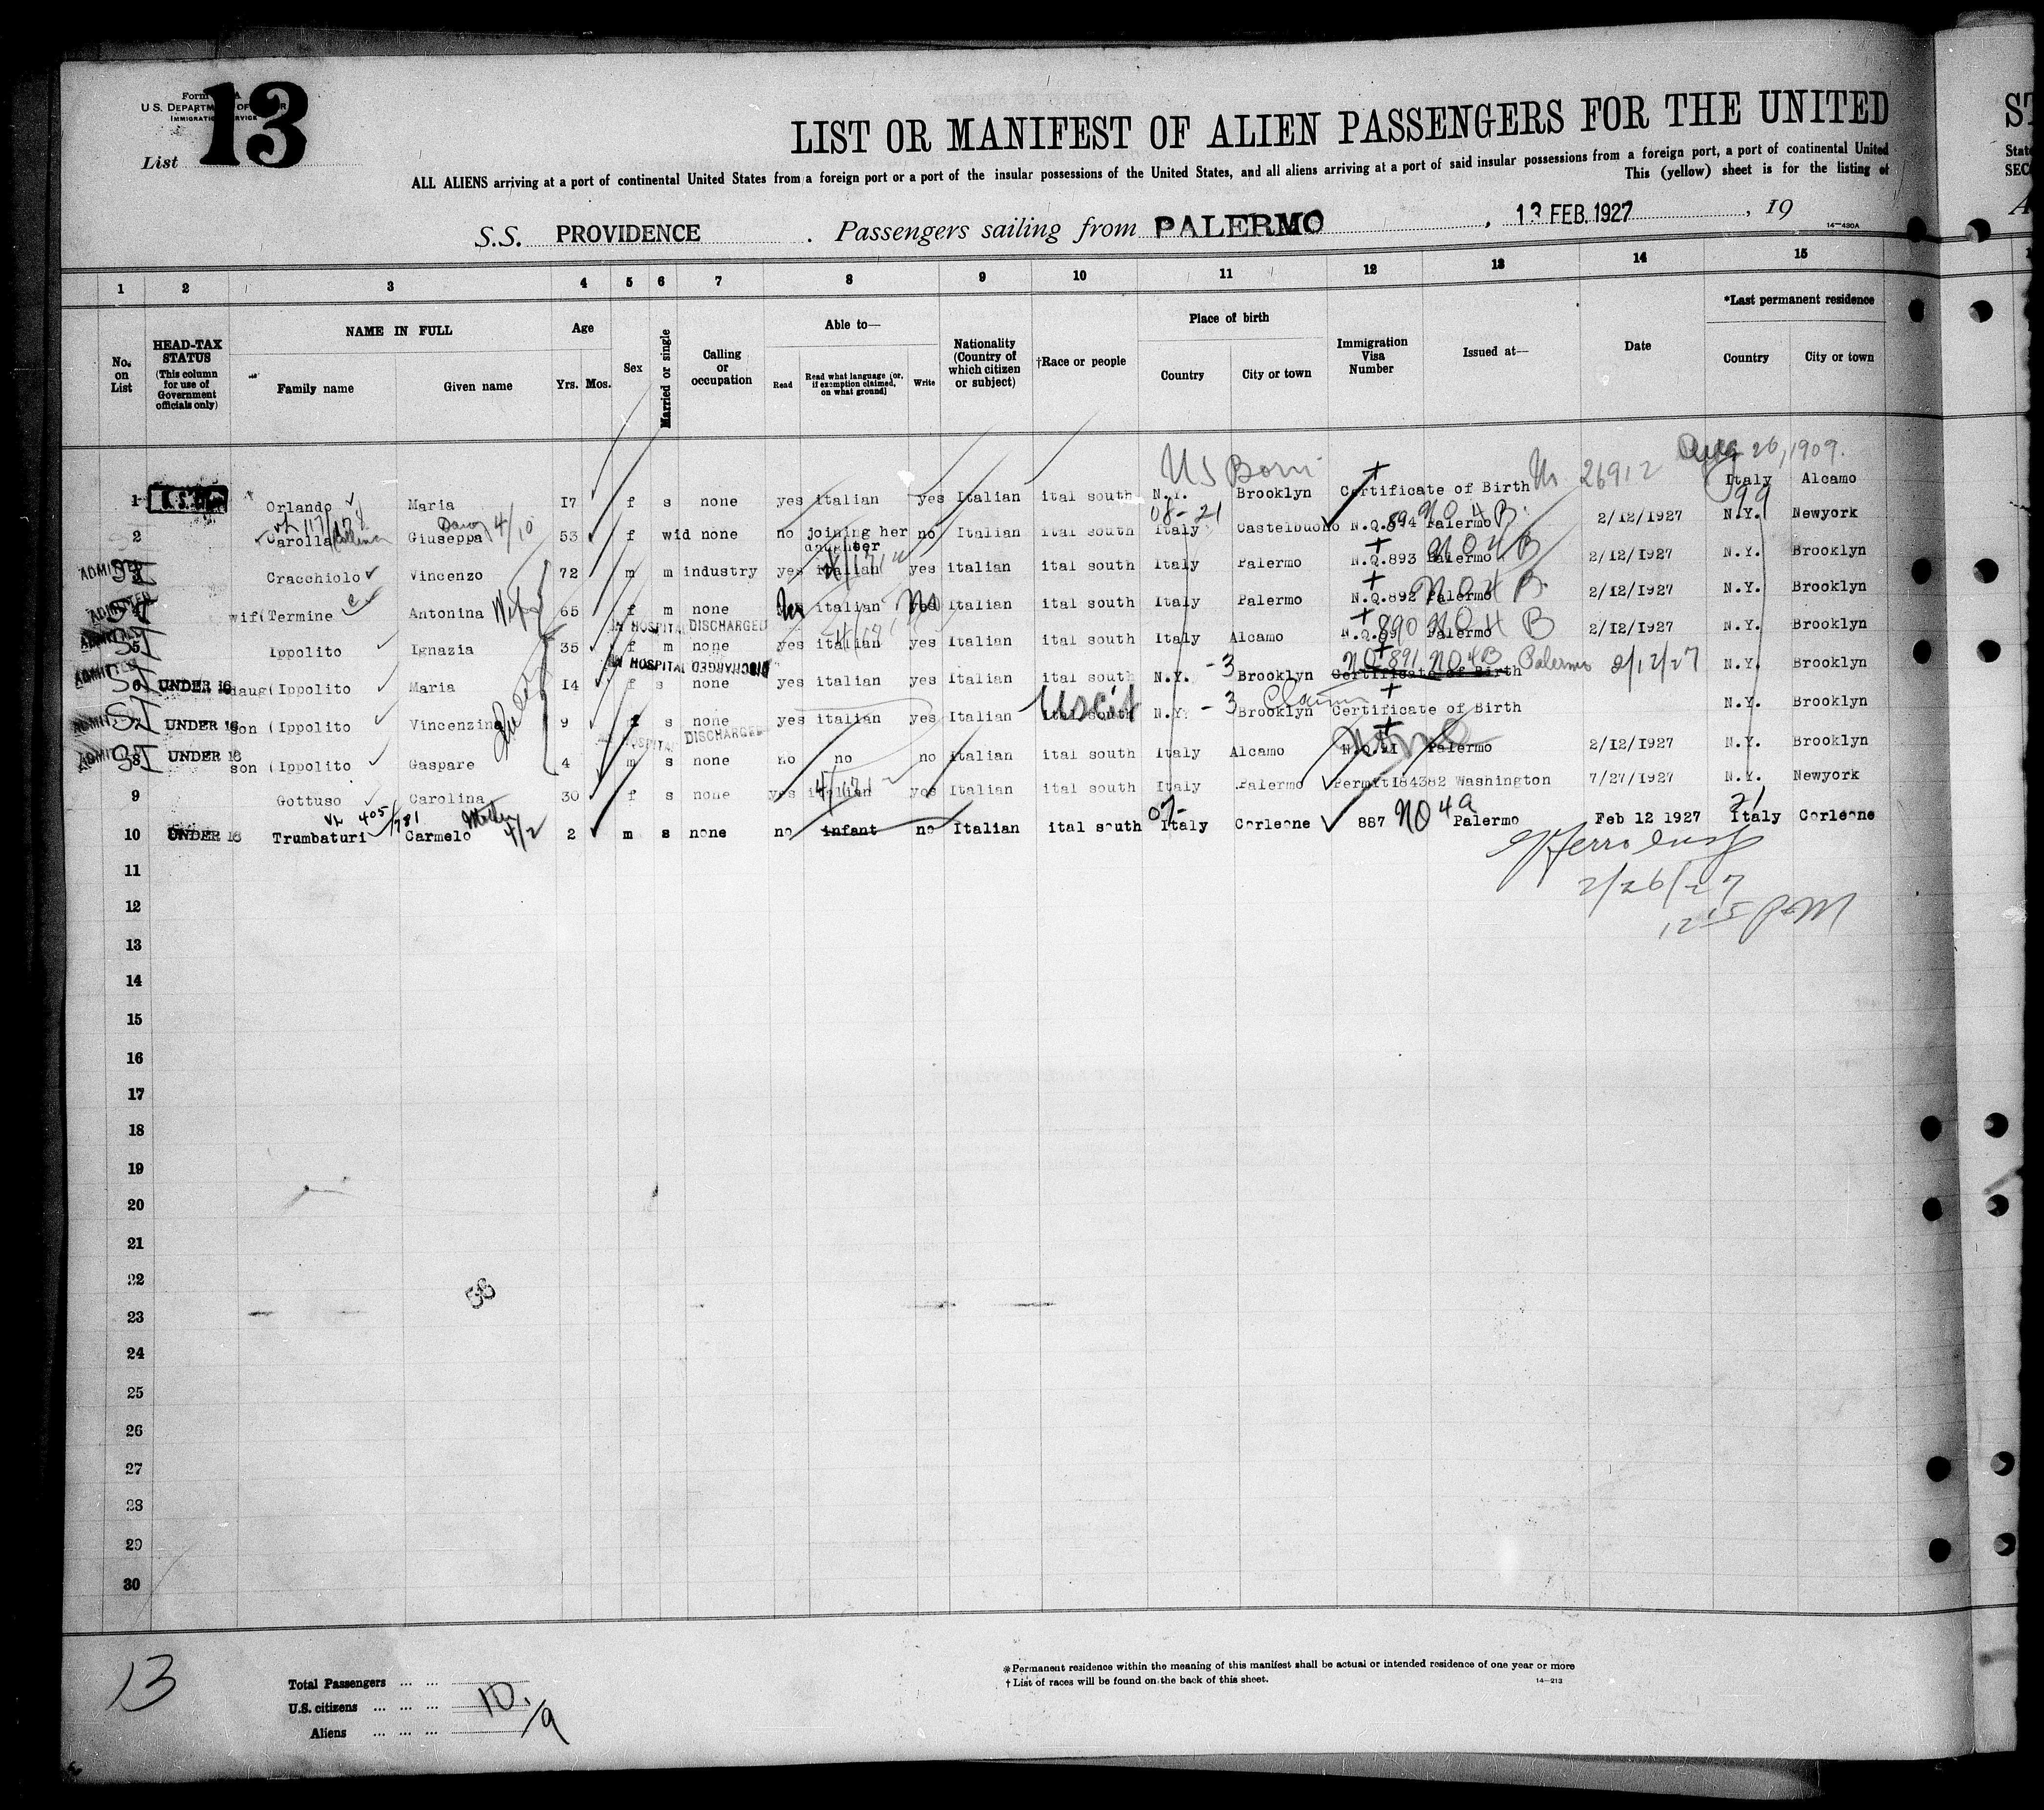 13
Form A
U.S. DEPARTM OF
IMMIGRATI RVICE
List
LIST OR MANIFEST OF ALIEN PASSENGERS FOR THE UNITED
ALL ALIENS arriving at a port of continental United States from a foreign port or a port of the insular possessions of the United States, and all aliens arriving at a port of said insular possessions from a foreign port, a port of continental United
This (yellow) sheet is for the listing of
S.S. PROVIDENCE . Passengers sailing from PALERMO , 13 FEB. 1927 , 19
14—430A
1 2 3 4 5 6 7 8 9 10 11 12 13 14 15
No. on List
HEAD-TAX STATUS (This column for use of Government officials only)
NAME IN FULL
Family name Given name
Age
Yrs. Mos.
Sex
Married or single
Calling or occupation
Able to—
Read Read what language (or, if exemption claimed, on what ground) Write
Nationality (Country of which citizen or subject)
†Race or people
Place of birth
Country City or town
Immigration Visa Number
Issued at—
Date
*Last permanent residence
Country City or town
US Born 26912 Aug 20, 1909.
1 Orlando Maria 17 f s none yes italian yes Italian ital south N.Y. Brooklyn Certificate of Birth Italy Alcamo
08-21 99
2 Carolla Giuseppa 4/10 53 f wid none no joining her daughter no Italian ital south Italy Castelbuono N.Q.894 Palermo NO 4 B 2/12/1927 N.Y. Newyork
ADMITTED SI 3 Cracchiolo Vincenzo 72 m m industry yes italian yes italian ital south Italy Palermo N.Q.893 Palermo NO 4 B 2/12/1927 N.Y. Brooklyn
ADMITTED SI 4 wife Termine Antonina Wife 65 f m none italian No Italian ital south Italy Palermo N.Q.892 Palermo NO 4 B 2/12/1927 N.Y. Brooklyn
IN HOSPITAL DISCHARGED
SI 5 Ippolito Ignazia 35 f m none yes italian yes Italian ital south Italy Alcamo N.Q. 890 Palermo NO 4 B 2/12/1927 N.Y. Brooklyn
IN HOSPITAL DISCHARGED
ADMITTED SI 6 UNDER 16 daug(Ippolito Maria 14 f s none yes italian yes Italian ital south N.Y. -3 Brooklyn Certificate of Birth NQ 891 NO 4 B Palermo 2/12/27 N.Y. Brooklyn
SI 7 UNDER 16 son (Ippolito Vincenzino 9 s none yes italian yes Italian ital south US cit N.Y. -3 Brooklyn Claim Certificate of Birth N.Y. Brooklyn
HOSPITAL DISCHARGED
SI 8 UNDER 16 son (Ippolito Gaspare 4 m s none no no no Italian ital south Italy Alcamo Palermo 2/12/1927 N.Y. Brooklyn
9 Gottuso Carolina 30 f s none yes italian yes Italian ital south Italy Palermo Permit184382 Washington 7/27/1927 N.Y. Newyork
405/781 Mother 4/2 07- 21
10 UNDER 16 Trumbaturi Carmelo 2 m s none no infant no Italian ital south Italy Corleone 887 NO 4a Palermo Feb 12 1927 Italy Corleone
2/26/27
12 15 PM
11
12
13
14
15
16
17
18
19
20
21
22
23
24
25
26
27
28
29
30
13
Total Passengers ... ...
U.S. citizens ... ... ... 10.
Aliens ... ... ... /9
*Permanent residence within the meaning of this manifest shall be actual or intended residence of one year or more
† List of races will be found on the back of this sheet.
14—213